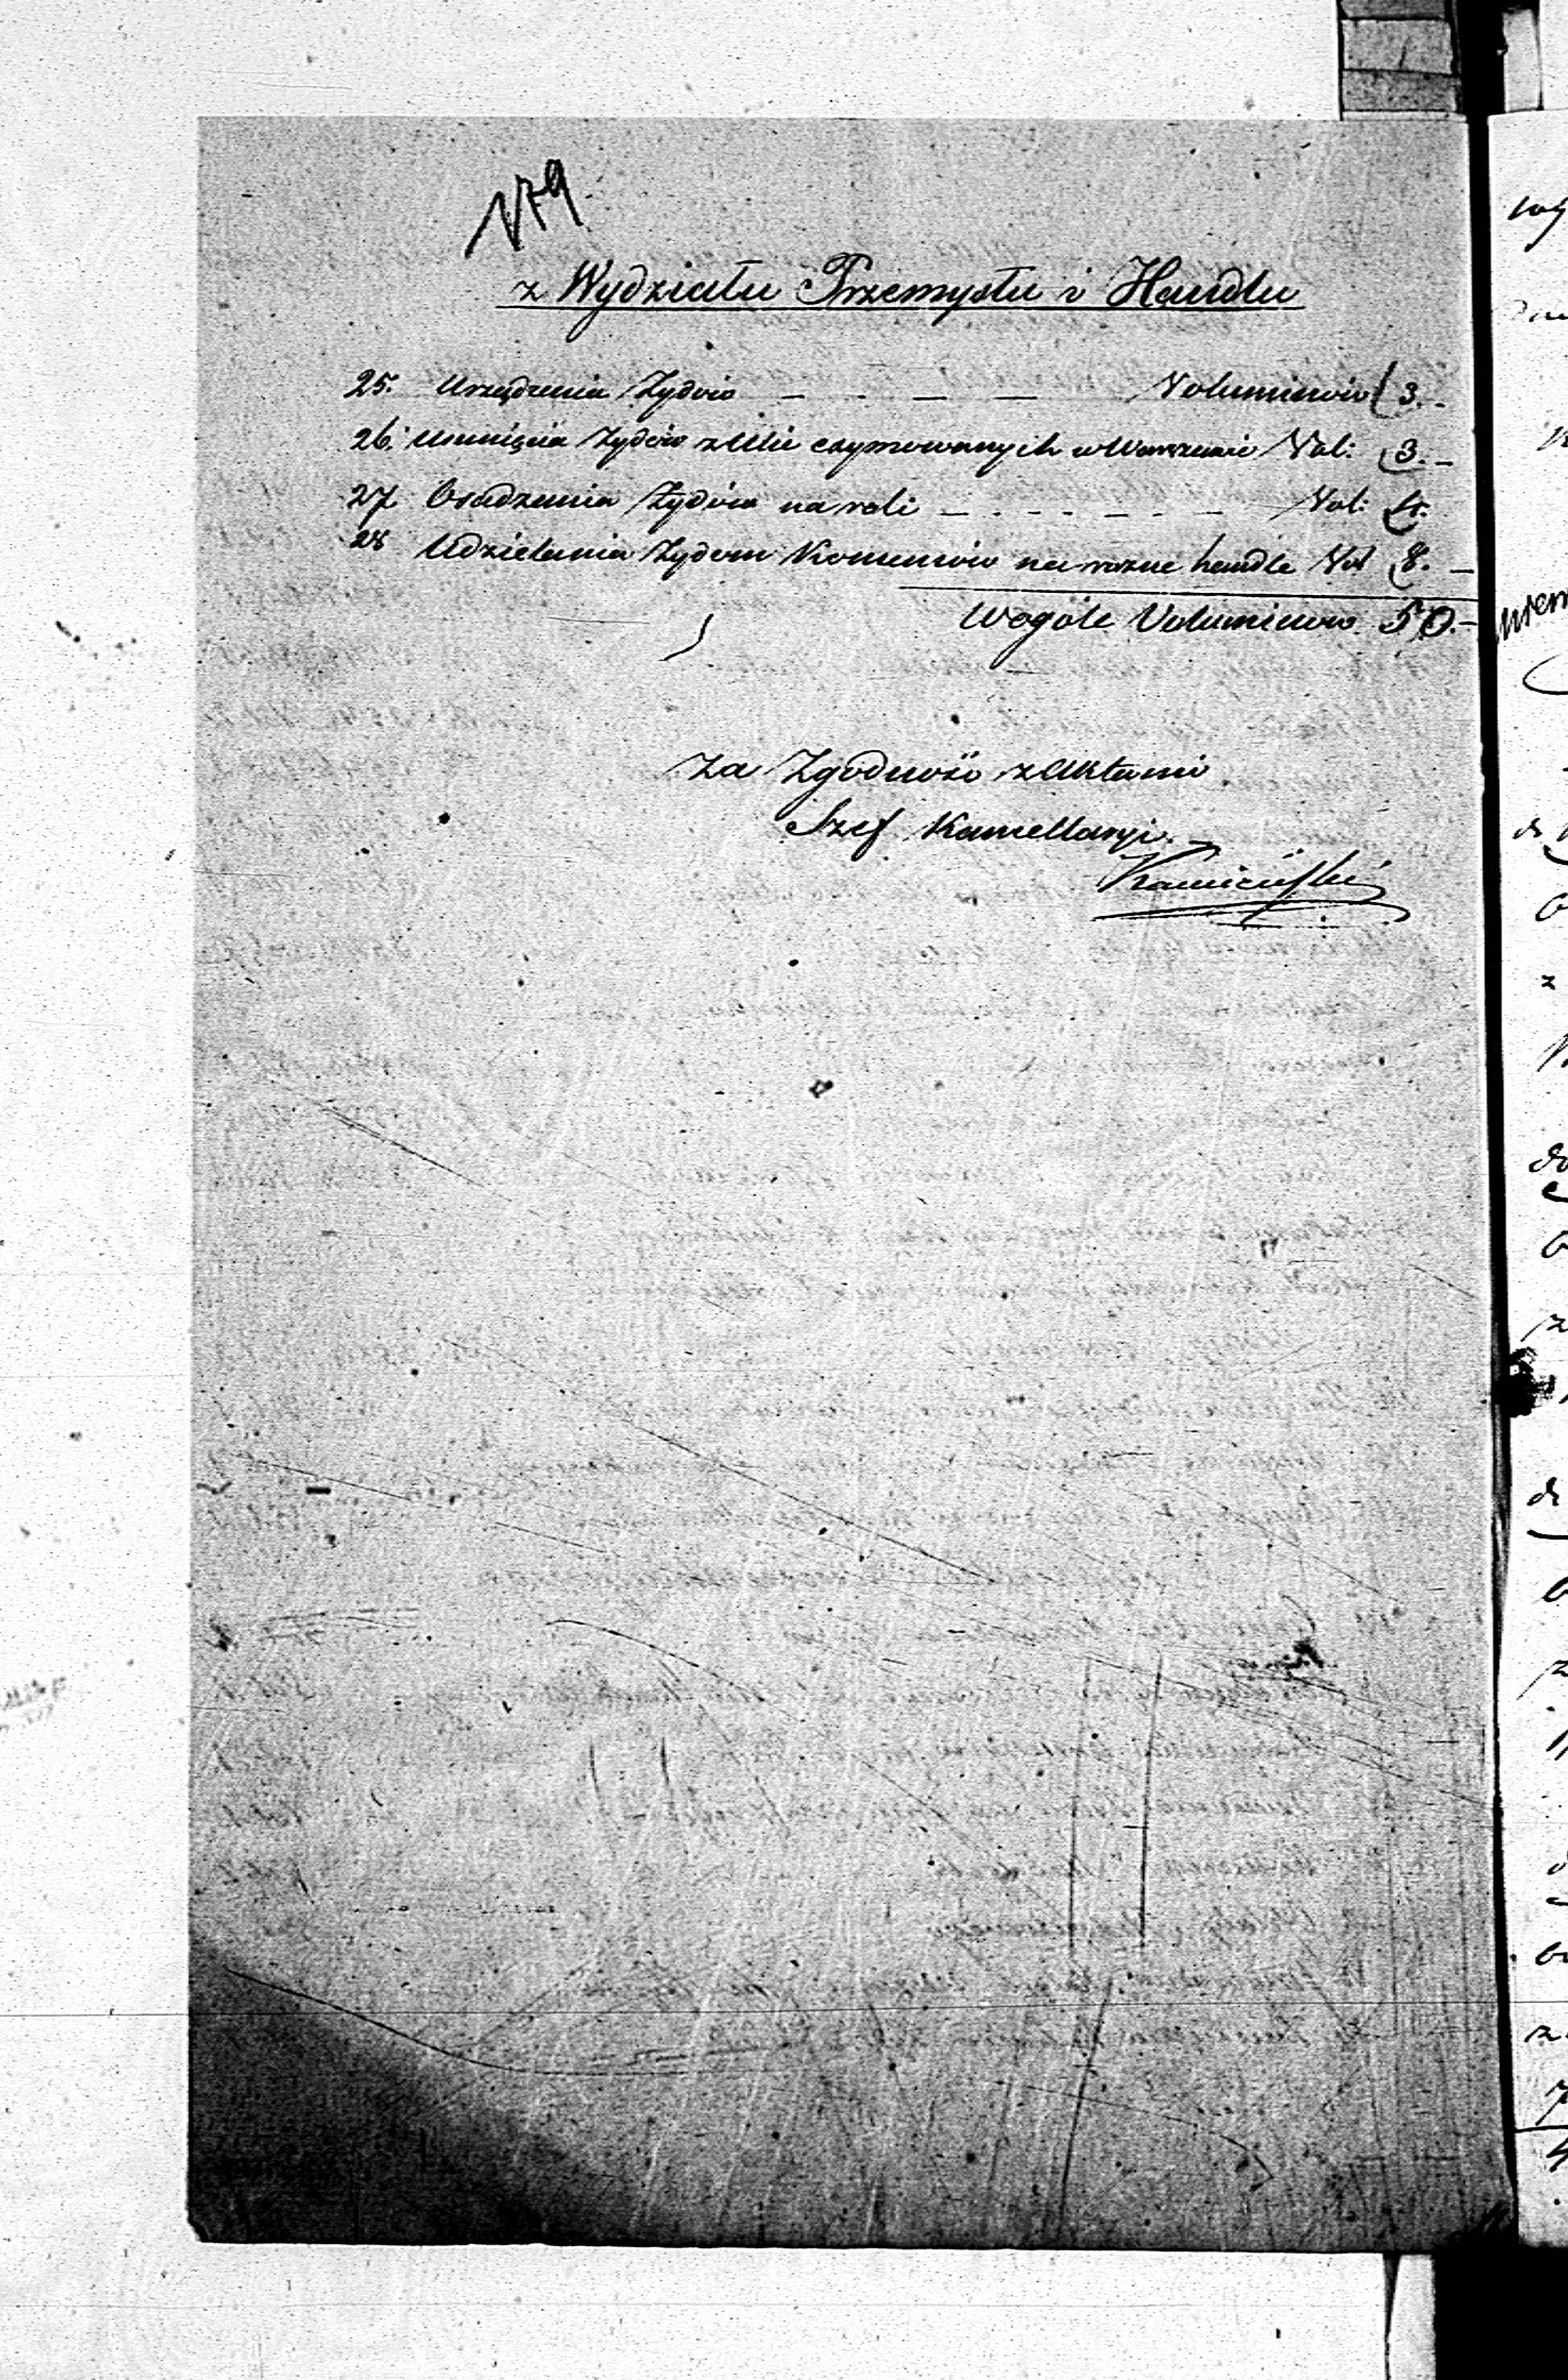 179
z Wydziału Przemysłu i Handlu
25. Urządzenia Żydów — - — — Voluminów 3. -
26. Usunięcia Żydów z Ulic exymowanych w Warszawie Vol: 3. -
27 Osadzenia Żydów na roli — . - - - — - — Vol: 4.
28 Udzielania Żydom Konsensów na rozne handle Vol 8. —
Wogóle Voluminow. 50.-
Za Zgodność z Aktami
Szef Kancellaryi.
Kamieński